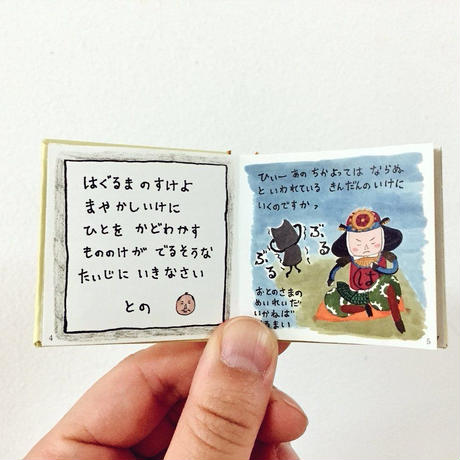 はぐるまのすけよ
まやかしいけに
ひとを かどわかす
もののけが でるそうな
たいじに いきなさい
との
4
ひぃー あの ちかよっては ならぬ
と いわれている きんだんの いけに
いくのですか?
ぶる
ぶる
は
おとのさまの
めいれいだ
いかねば
るまい
5